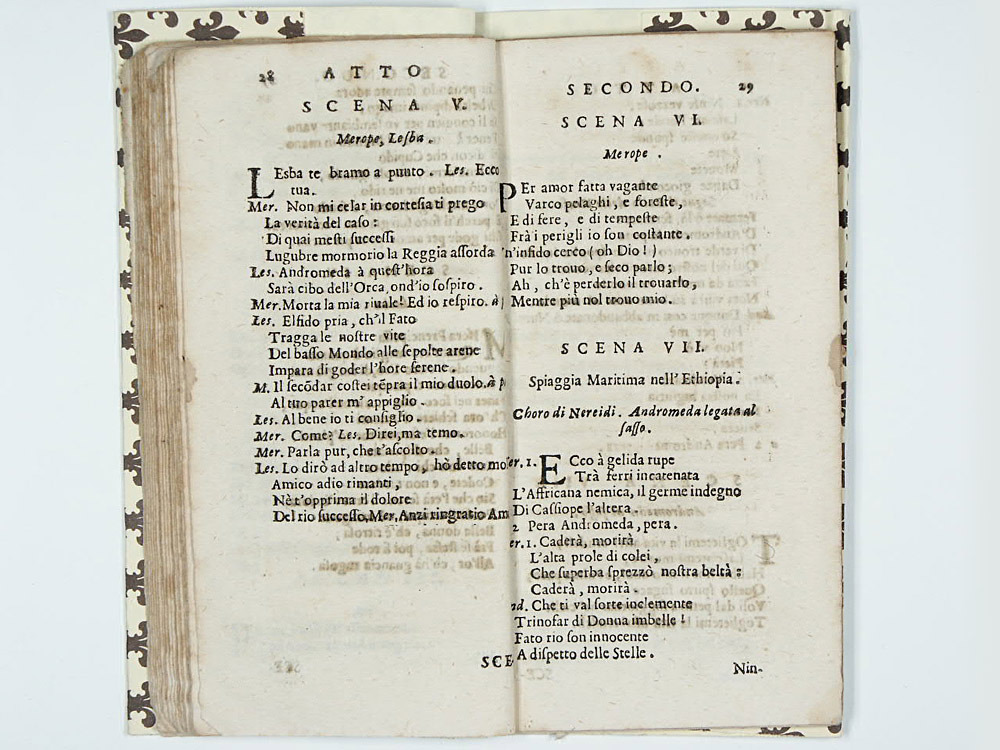 28 ATTO
SCENA V.
Merope, Lesba.
LEsba te bramo a punto. Les. Ecco
tua.
Mer. Non mi celar in cortesia ti prego
La verità del caso:
Di quai mesti successi
Lugubre mormorio la Reggia assorda
Les. Andromeda à quest'hora
Sarà cibo dell'Orca, ond'io sospiro.
Mer. Morta la mia riuale! Ed io respiro. à p
Les. Elfido pria, ch'il Fato
Tragga le nostre vite
Del basso Mondo alle sepolte arene
Impara di goder l'hore serene.
M. Il secõdar costei tẽpra il mio duolo. à p
Al tuo parer m'appiglio.
Les. Al bene io ti consiglio.
Mer. Come? Les. Direi, ma temo.
Mer. Parla pur, che t'ascolto.
Les. Lo dirò ad altro tempo, hò detto mo
Amico adio rimanti,
Nè t'opprima il dolore
Del rio successo, Mer. Anzi ringratio Am
SCE
SECONDO. 29
SCENA VI.
Merope.
PEr amor fatta vagante
Varco pelaghi, e foreste,
E di fere, e di tempeste
Frà i perigli io son costante.
n'infido cerco (oh Dio!)
Pur lo trouo, e seco parlo;
Ah, ch'è perderlo il trouarlo,
Mentre più nol trouo mio.
SCENA VII.
Spiaggia Maritima nell'Ethiopia.
Choro di Nereidi. Andromeda legata al
sasso.
er. 1. ECco à gelida rupe
Trà ferri incatenata
L'Affricana nemica, il germe indegno
Di Cassiope l'altera.
2 Pera Andromeda, pera.
er. 1. Caderà, morirà
L'alta prole di colei,
Che superba sprezzò nostra beltà:
Caderà, morirà.
nd. Che ti val sorte inclemente
Trinofar di Donna imbelle!
Fato rio son innocente
A dispetto delle Stelle.
Nin-